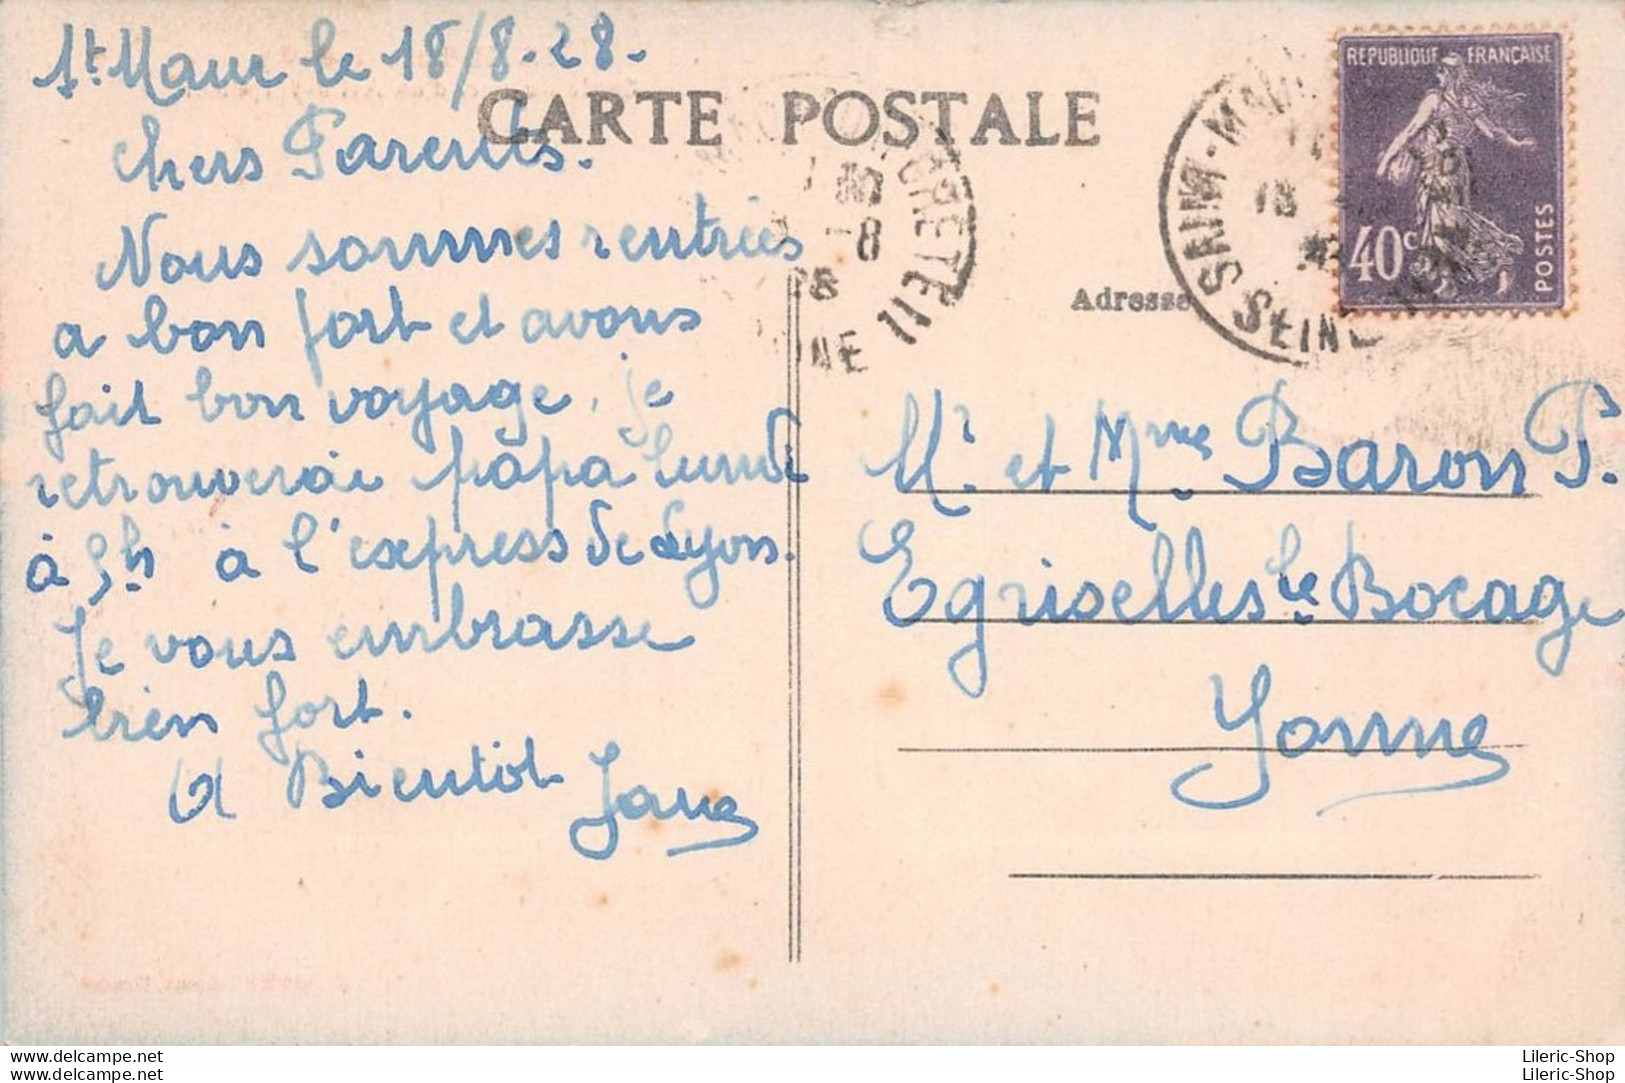 St Maur le 18/8-28-
CARTE POSTALE
chers Parents.
Nous sommes rentrées
a bon fort et avons
fait bon voyage, je
retrouverai papa lundi
à 5h à l'express de Lyon.
Je vous embrasse
bien fort.
A Bientôt
REPUBLIQUE FRANÇAISE
40c
POSTES
SEINE
Adresse
Mr et Mme Baron P.
Egriselles le Bocage
Yonne
www.delcampe.net
www.delcampe.net
Lileric-Shop
Lileric-Shop